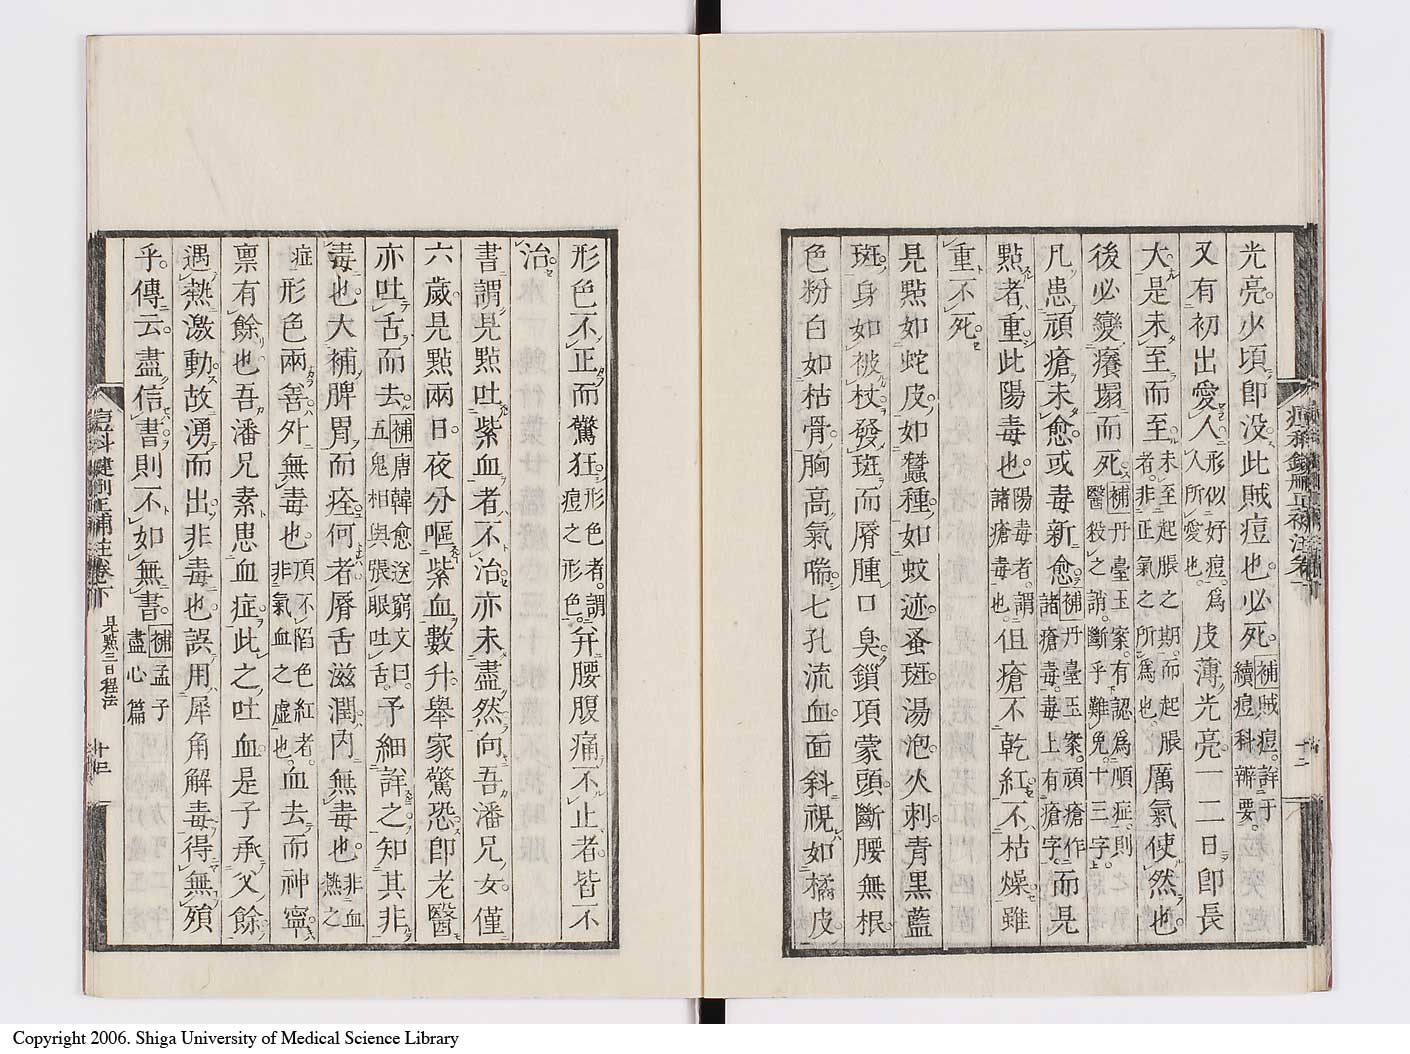 光亮。少頃即没。此賊痘也。必死。補賊痘。詳于續痘科辨要。
又有初出愛人形似好痘。爲人所愛也。皮薄光亮。一二日即長
大。是未至而至未至起脹之期。而起脹者。非正氣之所爲也。厲氣使然也。
後必變癢塌而死。補丹臺玉案。有認爲順症。則醫殺之誚。斷乎難免。十三字。
凡患頑瘡未愈或毒新愈補丹臺玉案。頑瘡作諸瘡毒。毒上有瘡字。而見
點者重。此陽毒也。陽毒者。謂諸瘡毒也。但瘡不乾紅。不枯燥。雖
重不死。
見點如蛇皮。如蠶種。如蚊迹蚤斑。湯泡火刺。青黑藍
斑。身如被杖。發斑而脣腫口臭。鎖項蒙頭。斷腰無根。
色粉白如枯骨。胸高氣喘。七孔流血。面斜視如橘皮。
痘科鍵刪正補注卷下
十二
形色不正而驚狂。形色者。謂痘之形色。并腰腹痛不止者。皆不
治。
書謂見點吐紫血者。不治。亦未盡然。向吾潘兄女。僅
六歲。見點兩日。夜分嘔紫血數升。舉家驚恐。即老醫
亦吐舌而去。補唐韓愈送窮文曰。五鬼相與張眼吐舌。予細詳之。知其非
毒也。大補脾胃而痊。何者。脣舌滋潤。内無毒也。非血燕之
症。形色兩善。外無毒也。頂不陷色紅者。非氣血之虚也。血去而神寧。
禀有餘也。吾潘兄素患血症。此之吐血。是子承父餘。
遇熱激動。故湧而出。非毒也。誤用犀角解毒。得無殞
乎。傳云。盡信書。則不如無書。補孟子盡心篇
痘科鍵刪正補注卷下
見點三日程法
十三
Copyright 2006. Shiga University of Medical Science Library